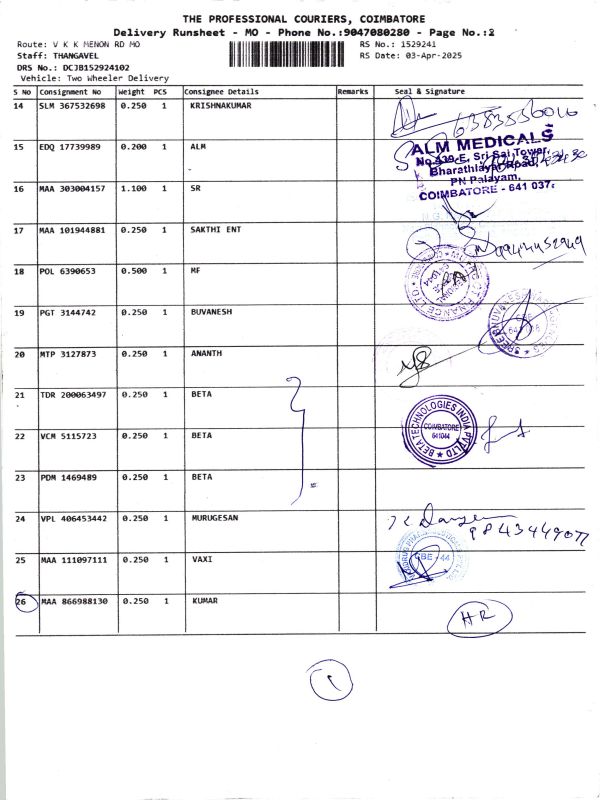 THE PROFESSIONAL COURIERS, COIMBATORE
Delivery Runsheet - MO - Phone No.:9047080280 - Page No.:2
Route: V K K MENON RD MO RS No.: 1529241
Staff: THANGAVEL RS Date: 03-Apr-2025
DRS No.: DCJB152924102
Vehicle: Two Wheeler Delivery
S No Consignment No Weight PCS Consignee Details Remarks Seal & Signature
14 SLM 367532698 0.250 1 KRISHNAKUMAR
15 EDQ 17739989 0.200 1 ALM
ALM MEDICALS
No.439-E, Sri Sai Tower,
Bharathiayar Road,
PN Palayam,
COIMBATORE - 641 037.
16 MAA 303004157 1.100 1 SR
17 MAA 101944881 0.250 1 SAKTHI ENT
18 POL 6390653 0.500 1 MF
19 PGT 3144742 0.250 1 BUVANESH
20 MTP 3127873 0.250 1 ANANTH
21 TDR 200063497 0.250 1 BETA
BETA TECHNOLOGIES INDIA PVT LTD
COIMBATORE
641044
22 VCM 5115723 0.250 1 BETA
23 PDM 1469489 0.250 1 BETA
24 VPL 406453442 0.250 1 MURUGESAN
9843449077
25 MAA 111097111 0.250 1 VAXI
CBE - 44
26 MAA 866988130 0.250 1 KUMAR
HR
1